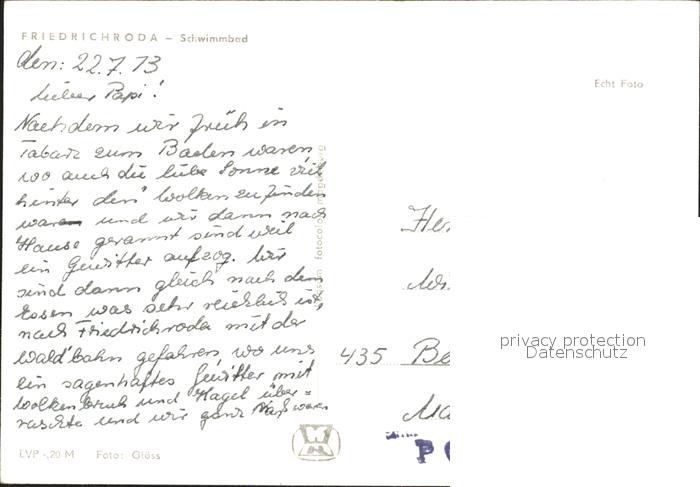 FRIEDRICHRODA – Schwimmbad
den: 22.7.73
Lieber Papi!
Echt Foto
Nachdem wir früh in
Tabarz zum Baden waren,
wo auch die liebe Sonne viel
hinter den Wolken zu finden
war und wir dann nach
Hause gerannt sind weil
ein Gewitter aufzog. Wir
sind dann gleich nach dem
Essen was sehr reichlich ist,
nach Friedrichroda mit der
Waldbahn gefahren, wo uns
ein sagenhaftes Gewitter mit
Wolkenbruch und Hagel über=
raschte und wir ganz naß waren
EVP -,20 M Foto: Gläss
fotocolor
Her
435 Be
privacy protection
Datenschutz